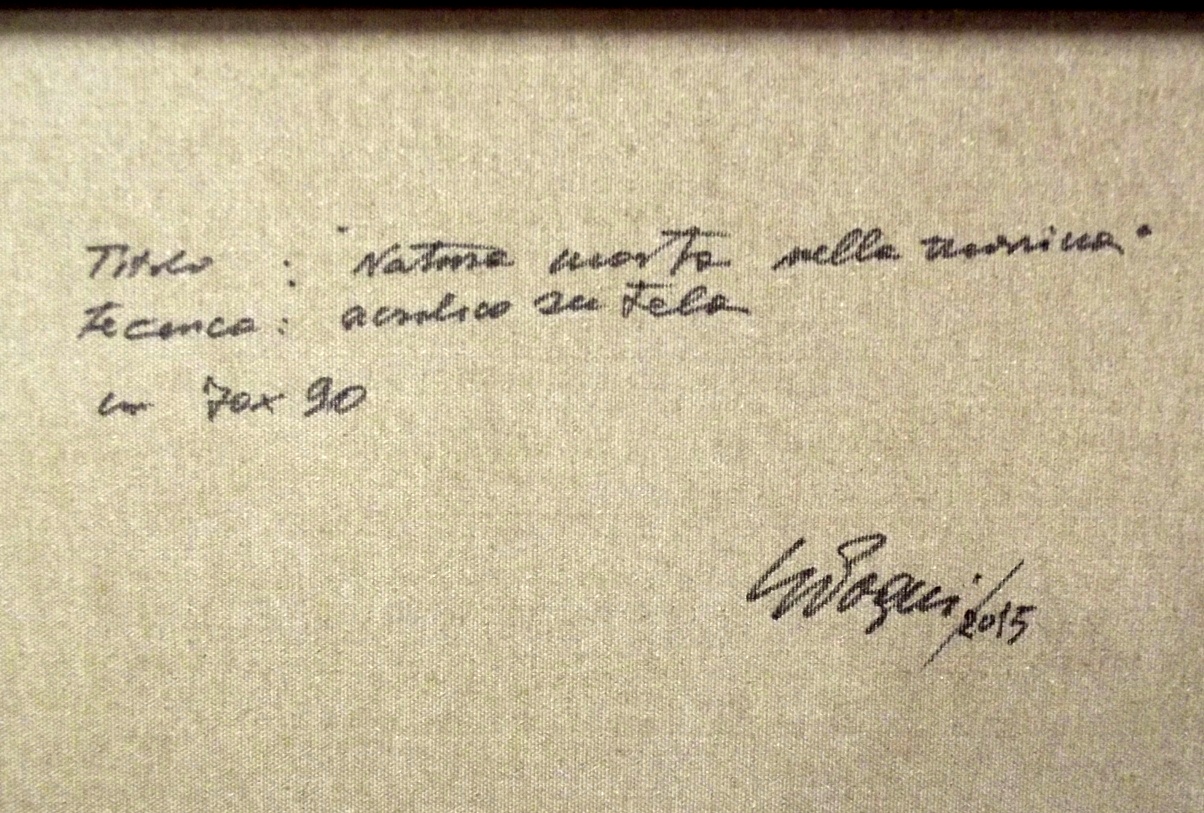 Titolo : "Natura morta nella marina"
tecnica: acrilico su tela
cm 70x90
2015